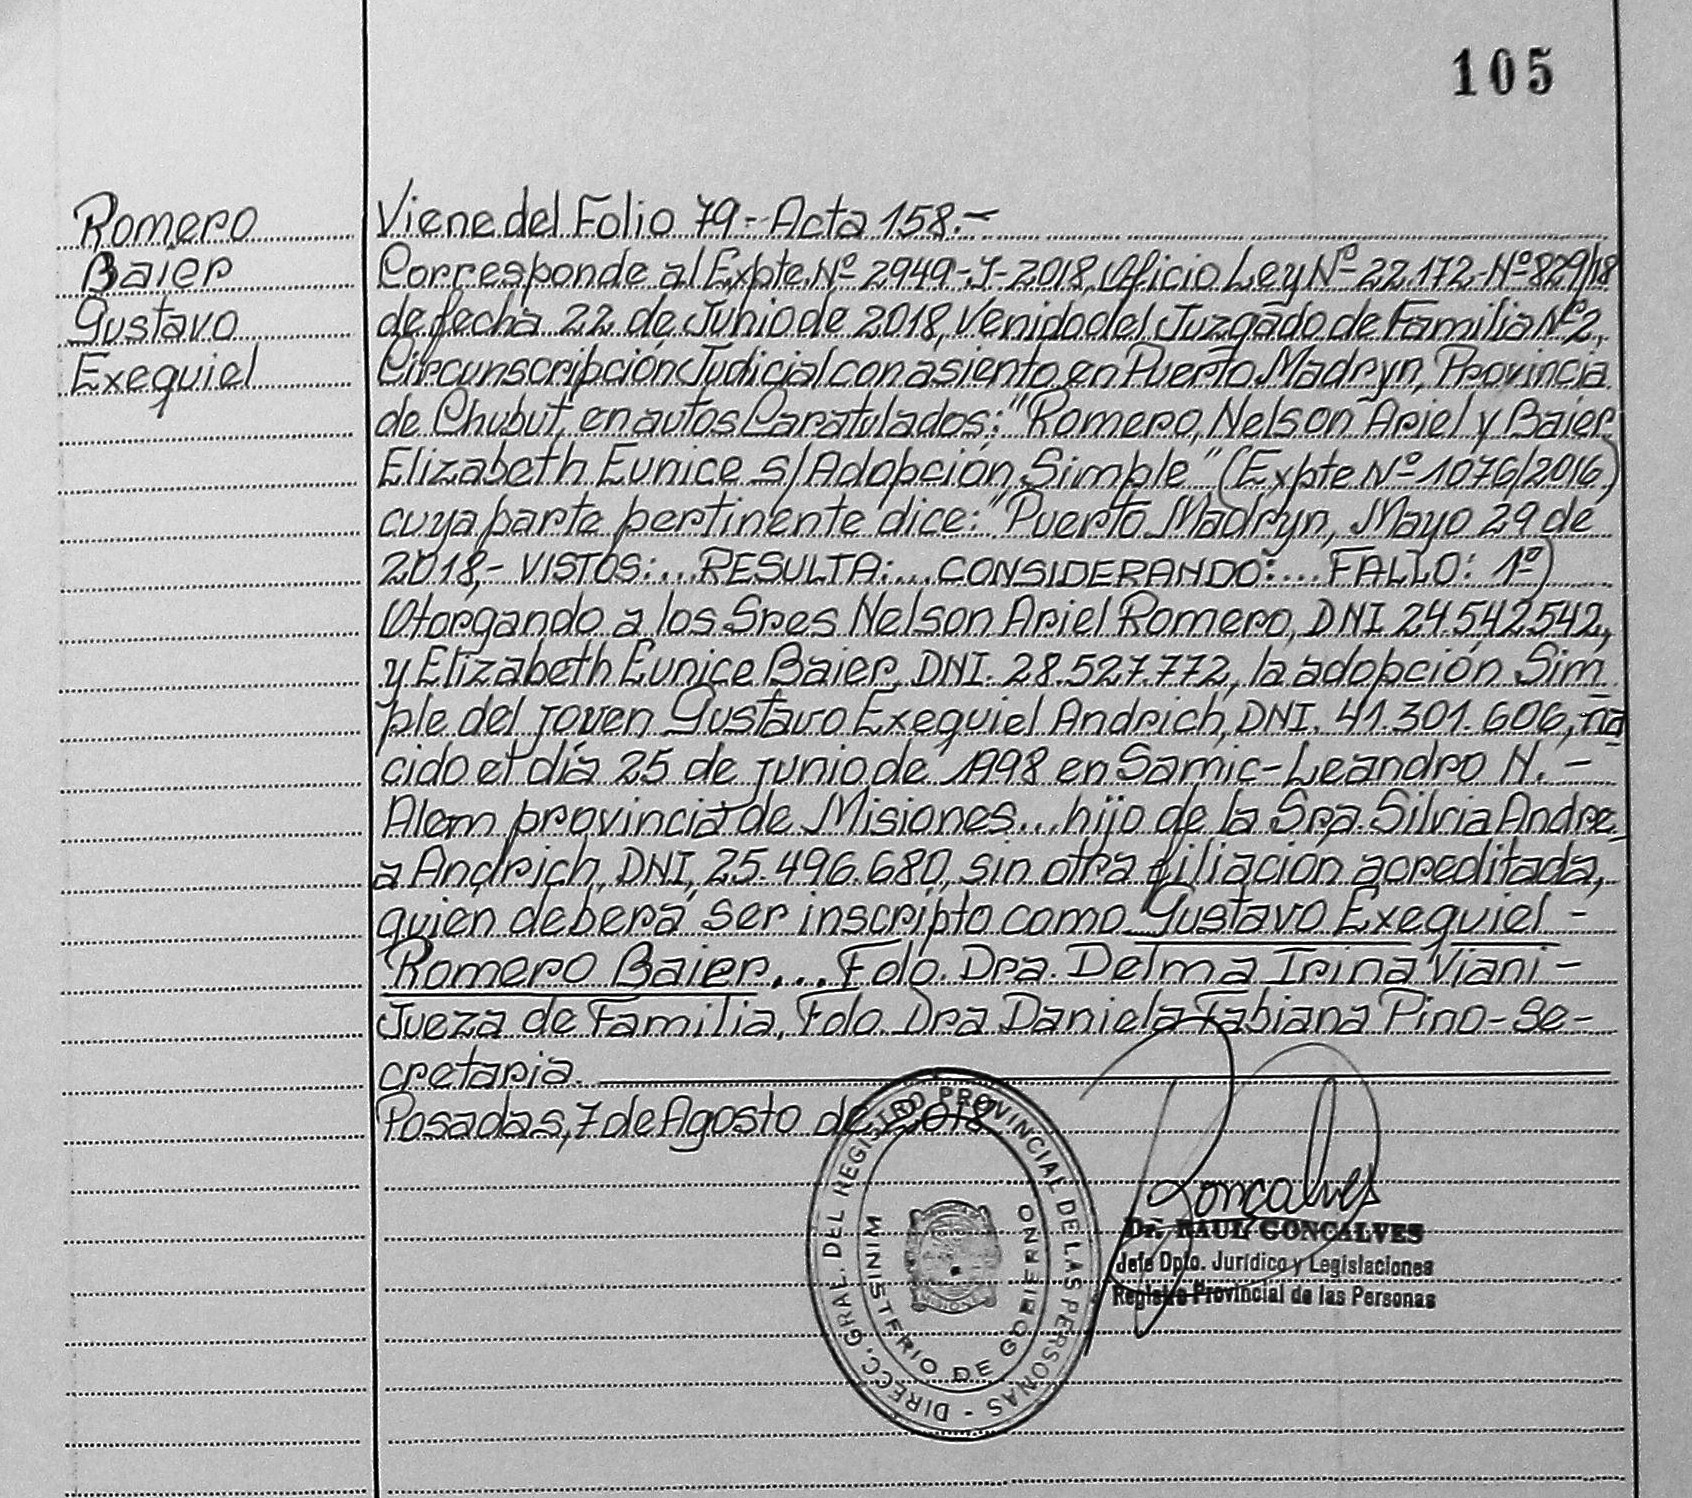 105
Romero
Baier
Gustavo
Exequiel
Viene del Folio 79.- Acta 158.-
Corresponde al Expte. Nº 2949-J-2018, Oficio Ley Nº 22.172-Nº 829/18
de fecha 22 de Junio de 2018, Venido del Juzgado de Familia Nº 2,
Circunscripción Judicial con asiento en Puerto Madryn, Provincia
de Chubut, en autos Caratulados: "Romero, Nelson Ariel y Baier,
Elizabeth Eunice s/Adopción Simple" (Expte Nº 1076/2016)
cuya parte pertinente dice: "Puerto Madryn, Mayo 29 de
2018,- VISTOS:...RESULTA:...CONSIDERANDO:...FALLO: 1º)
Otorgando a los Sres Nelson Ariel Romero, DNI 24.542542,
y Elizabeth Eunice Baier, DNI. 28.527.772, la adopción Sim
ple del joven Gustavo Exequiel Andrich, DNI. 41.301.606, na
cido el día 25 de junio de 1998 en Samic-Leandro N. -
Alem provincia de Misiones...hijo de la Sra. Silvia Andre
a Andrich, DNI, 25.496.680, sin otra filiación acreditada,
quien deberá ser inscripto como Gustavo Exequiel -
Romero Baier... Fdo. Dra. Delma Irina Viani -
Jueza de Familia, Fdo. Dra Daniela Fabiana Pino-Se-
cretaria.
Posadas, 7 de Agosto de 2018
DIRECC. GRAL. DEL REGISTRO PROVINCIAL DE LAS PERSONAS -
MINISTERIO DE GOBIERNO
Goncalves
Dr. RAUL GONCALVES
Jefe Dpto. Jurídico y Legislaciones
Registro Provincial de las Personas